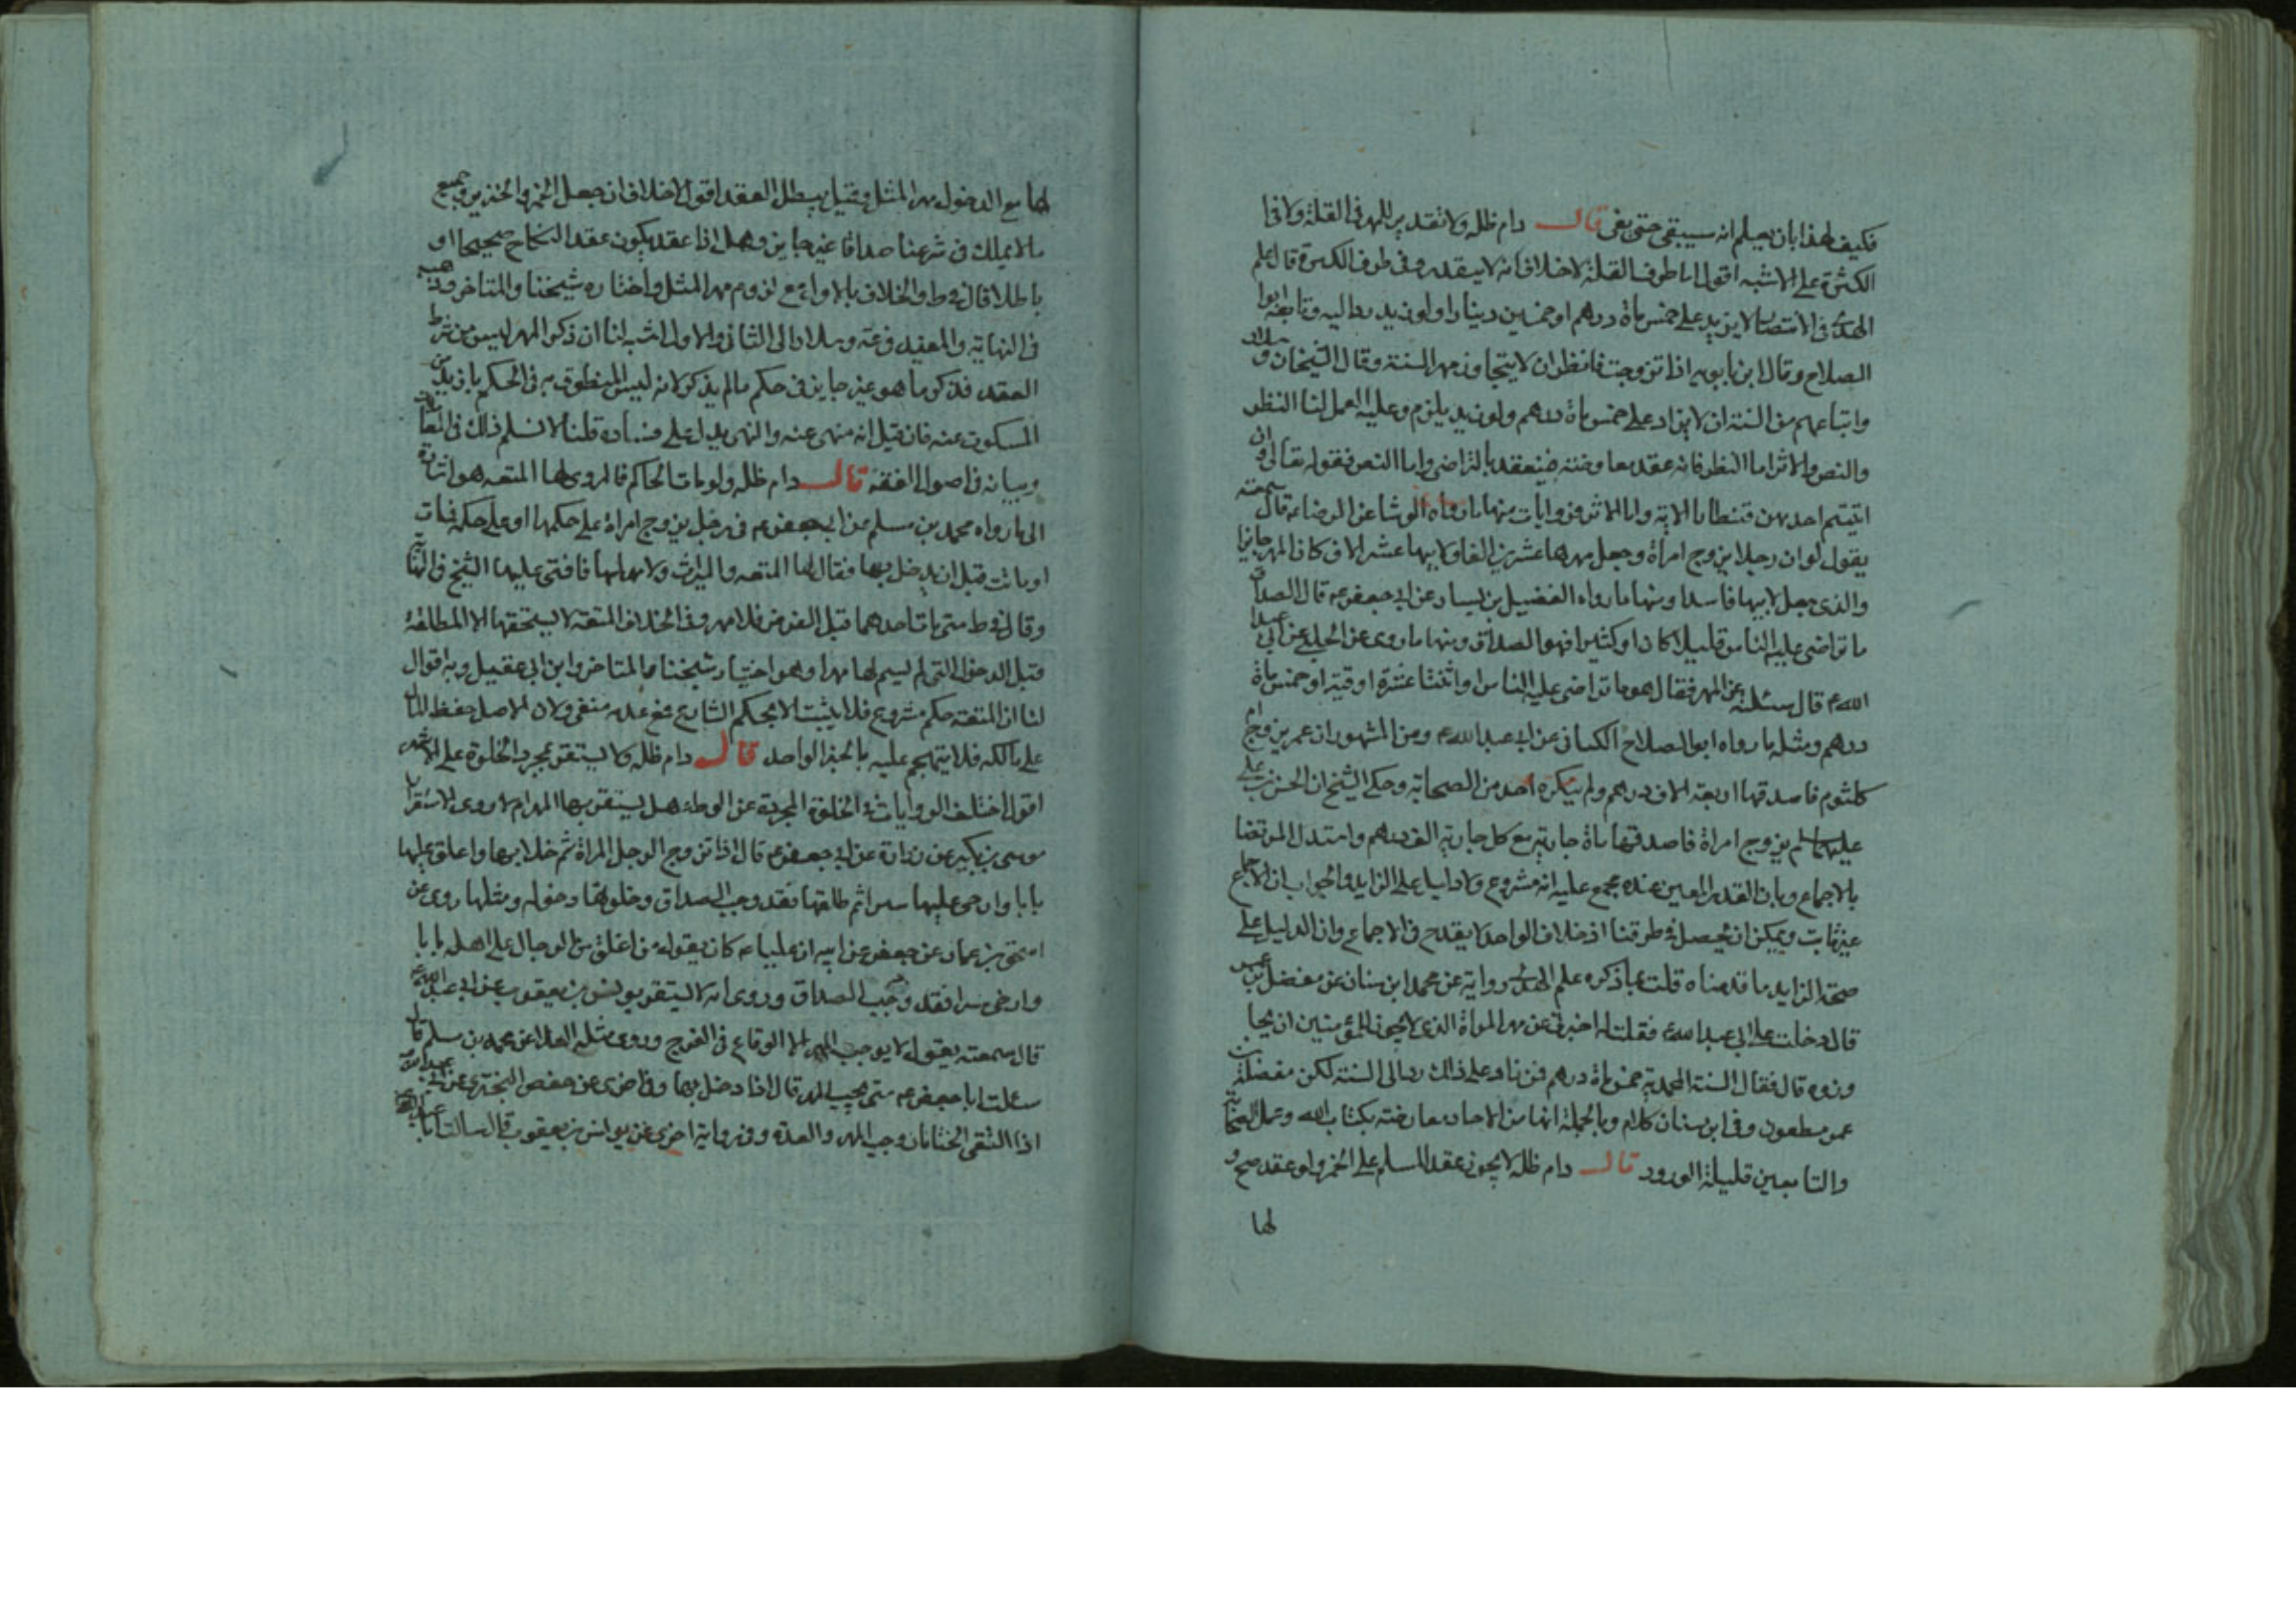 فكيف لهذا بان يعلم انه سيبقى حتى يفى قال دام ظله ولا تقدير للمهر فى القلة ولا فى
الكثرة على الاشبه اقول اما طرف القلة لا خلاف انه لا يتقدر وفى طرف الكثرة قال علم
الهدى فى الانتصار لا يزيد على خمس ماة درهم او خمسين دينارا ولو زيد رد اليه وتابعه ابوا
الصلاح وقال ابن بابويه اذا تزوجت فانظر ان لا يتجاوز مهر السنة وقال الشيخان وسلار
واتباعهم من السنة ان لا يزاد على خمس ماة درهم ولو زيد يلزم وعليه العمل لنا النظر
والنص والاثر اما النظر فانه عقد معاوضة فينعقد بالتراضى واما النص فقوله تعالى وان
اتيتم احديهن قنطارا الاية واما الاثر فروايات منها ما رواه الوشا عن الرضا ع قال سمعته
يقول لو ان رجلا يزوج امراة وجعل مهرها عشرين الفا ولابيها عشر الاف كان المهر جايزا
والذى جعل لابيها فاسدا ومنها ما رواه الفضيل بن يسار عن ابى جعفر ع قال الصداق
ما تراضى عليه الناس قليلا كان او كثيرا فهو الصداق ومنها ما روى عن الحلبى عن ابى عبد
الله ع قال سئلته عن المهر فقال هو ما تراضى عليه الناس او اثنتا عشرة اوقية او خمس ماة
درهم ومثله ما رواه ابو الصلاح الكنانى عن ابى عبد الله ع ومن المشهور ان عمر يزوج ام
كلثوم فاصدقها اربعة الاف درهم ولم ينكره احد من الصحابة وحكى الشيخ ان الحسن بن على
عليهما السلم يزوج امراة فاصدقها ماة جارية مع كل جارية الف درهم واستدل المرتضا
بالاجماع وبان القدر المعين عنده مجمع عليه انه مشروع ولا دليل على الزايد والجواب ان الاجماع
غير ثابت ويمكن ان يحصل فى طرقنا اذ خلاف الواحد لا يقدح فى الاجماع وان الدليل على
صحة الزايد ما قدمناه قلت بما ذكره علم الهدى رواية عن محمد ابن سنان عن مفضل بن عمر
قال دخلت على ابى عبد الله ع فقلت له اخبرنى عن مهر المراة الذى لا يجوز للمؤمنين ان يجا
وزوه قال فقال السنة المحمدية خمس ماة درهم فمن زاد على ذلك رد الى السنة لكن مفضل بن
عمر مطعون وفى ابن سنان كلام وبالجملة انها من الاحاد معارضة بكتاب الله وعمل الصحابة
والتابعين قليلة الورود قال دام ظله لا يجوز عقد المسلم على الخمر ولو عقد صح و
لها
لها مع الدخول مهر المثل وقيل يبطل العقد اقول لا خلاف ان جعل الخمر والخنزير وجميع
ما لا يملك فى شرعنا صداقا غير جايز وهل اذا عقد يكون عقد النكاح صحيحا او
باطلا قال فى ط والخلاف بالاول مع لزوم مهر المثل واختاره شيخنا والمتاخر وذهب
فى النهاية والمفيد فى عة وسلار الى الثانى والاول اشبه لنا ان ذكر المهر ليس من شرط
العقد فذكر ما هو غير جايز فى حكم ما لم يذكر لانه ليس المنطوق به فى الحكم بازيد من
المسكوت عنه فان قيل انه منهى عنه والنهى يدل على فساده قلنا لا نسلم ذلك فى المعاملات
وبيانه فى اصول الفقه قال دام ظله ولو مات الحاكم فالمروى لها المتعة هو اشارة
الى ما رواه محمد بن مسلم عن ابى جعفر ع فى رجل يزوج امراة على حكمها او على حكمه فمات
او ماتت قبل ان يدخل بها فقال لها المتعة والميراث ولا مهر لها فافتى عليها الشيخ فى النهاية
وقال فى ط متى مات احدهما قبل الفرض فلا مهر وفى الخلاف المتعة لا يستحقها الا المطلقة
قبل الدخول التى لم يسم لها مهرا وهو اختيار شيخنا والمتاخر وابن ابى عقيل وبه اقول
لنا ان المتعة حكم مشروع فلا يثبت الا بحكم الشارع فمع عدمه منفى ولان الاصل حفظ المال
على مالكه فلا يتهجم عليه بالخبر الواحد قال دام ظله ولا يستقر بمجرد الخلوة على الاشهر
اقول اختلف الروايات فى الخلوة المجردة عن الوطء هل يستقر بها المهر ام لا روى الاستقرار
موسى بن بكير عن زرارة عن ابى جعفر ع قال اذا تزوج الرجل المراة ثم خلا بها واغلق عليها
بابا وارخى عليها سترا ثم طلقها فقد وجب الصداق وخلوته بها دخوله ومثلها روى عن
اسحق بن عمار عن جعفر عن ابيه ان عليا ع كان يقول من اغلق من الرجال على اهله بابا
وارخى سترا فقد وجب الصداق وروى انه لا يستقر يونس بن يعقوب عن ابى عبد الله ع
قال سمعته يقول لا يوجب المهر الا الوقاع فى الفرج وروى مثله العلا عن محمد بن مسلم قال
سئلت ابا جعفر ع متى يجب المهر قال اذا دخل بها وفى اخرى عن حفص البخترى عن ابى عبد الله
اذا التقى الختانان وجب المهر والعدة وفى رواية اخرى عن يونس بن يعقوب قال سالت ابا عبد الله